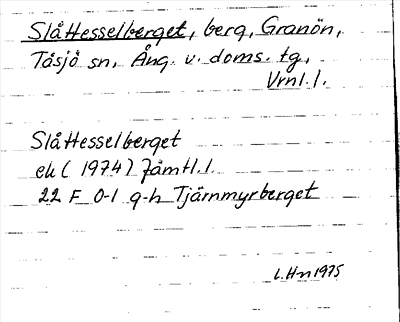 Slåttesselberget, berg, Granön,
Tåsjö sn, Ång. v. doms. tg,
Vrnl. l.
Slåttesselberget
ek ( 1974 ) Jämtl. l.
22 F 0-1 g-h Tjärnmyrberget
L.Hn 1975